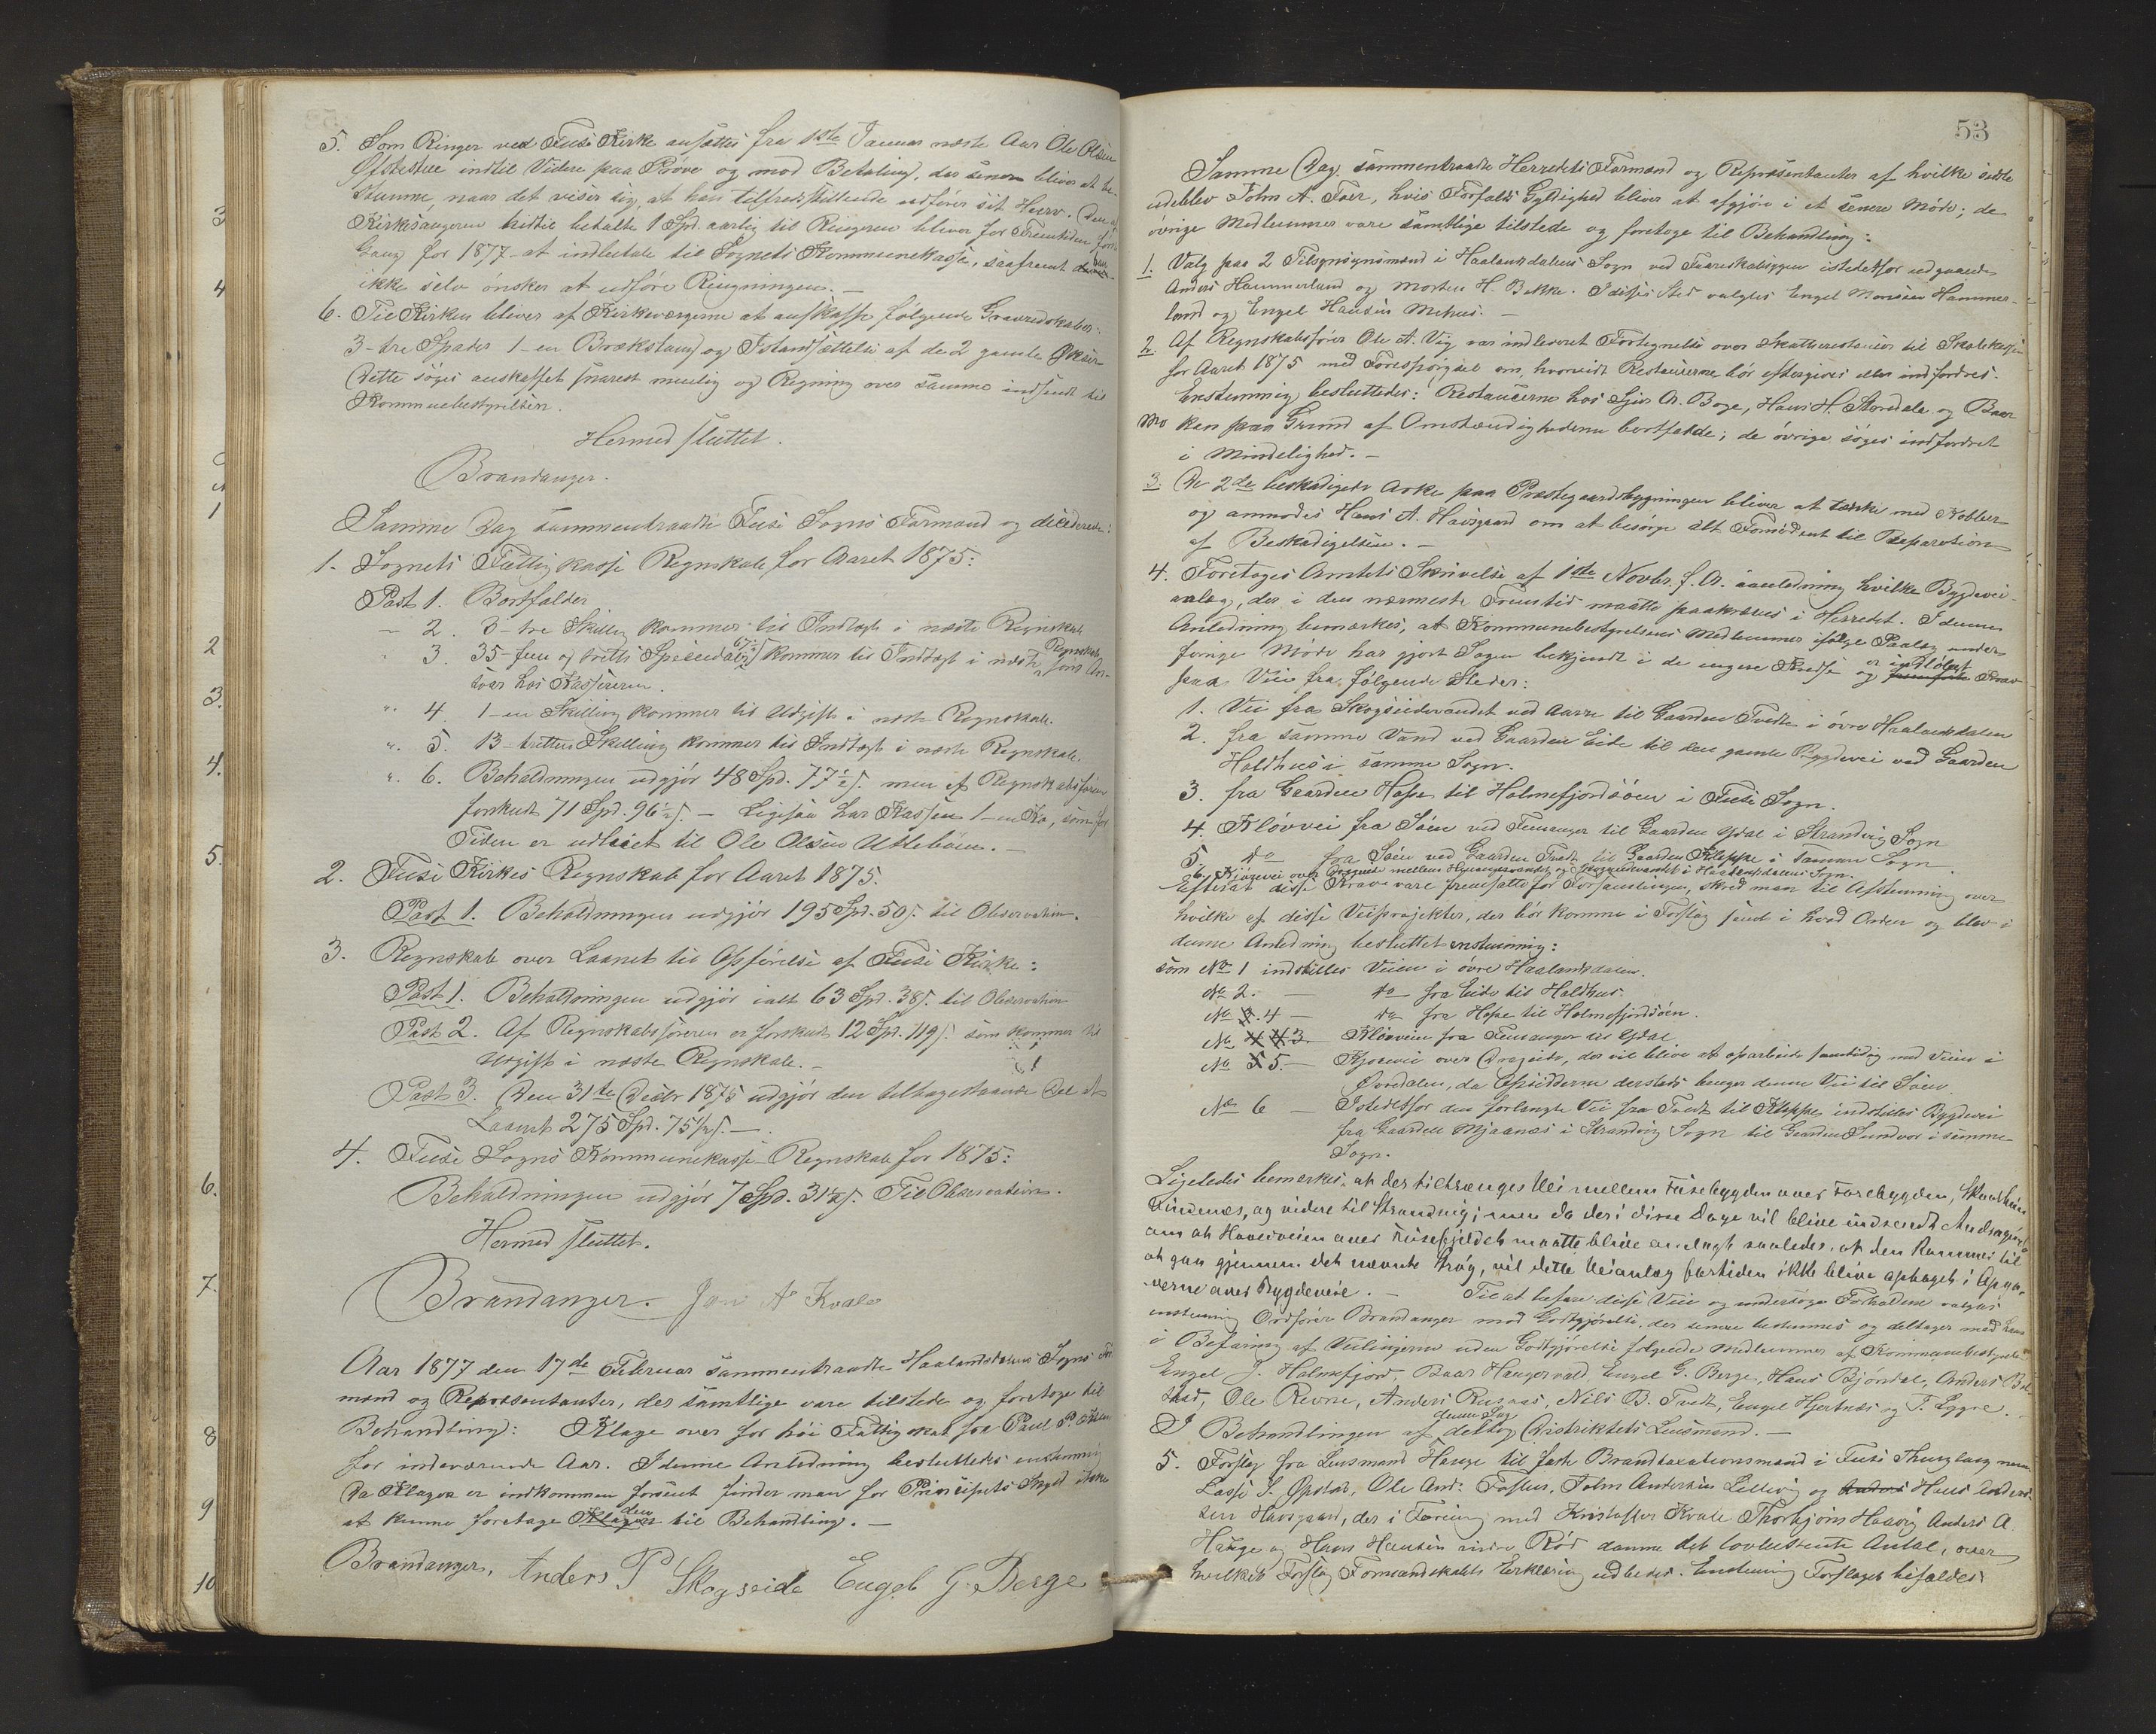 5. Som Ringer ved Fuse Kirke ansættes fra 1ste Januar næste Aar Ole Olsen
Øfstestue indtil Videre paa Prøve og mod Betaling, der senere bliver at be-
stemme, naar det viser sig, at han tilfredsstillende udfører sit Hverv. Den af
Kirkesangeren hidtil betalte 1 Spd. aarlig til Ringeren bliver for Fremtiden første
Gang for 1877 at indbetale til Sognets Kommunekasse, saafremt han
ikke selv ønsker at udføre Ringningen. –
6. Til Kirken bliver af Kirkeværgerne at anskaffe følgende Gravredskaber:
3 - tre Spader 1 - en Brækstang og Istandsættelse af de 2 gamle Økser
Dette søges anskaffet snarest muelig og Regning over samme indsendt til
Kommunebestyrelsen.
Hermed sluttet.
Brandanger.
Samme Dag sammentraadte Fuse Sogns Formænd og deciderede:
1. Sognets Fattigkasse Regnskab for Aaret 1875:
Post 1. Bortfalder
" 2. 3 - tre Skilling kommer til Indtægt i næste Regnskab
" 3. 35 - fem og tretti Speciedaler 67½ s kommer til Indtægt i næste Regnskab, som An-
svar hos Kassereren.
" 4. 1 - en Skilling kommer til Udgift i næste Regnskab.
" 5. 13 - tretten Skilling kommer til Indtægt i næste Regnskab.
" 6. Beholdningen udgjør 48 Spd. 77½ s. men af Regnskabsføreren
forskudt 71 Spd. 96½ s. – Ligesaa har Kassen 1 - en Ko, som for
Tiden er udleiet til Ole Olsen Uttebøen. –
2. Fuse Kirkes Regnskab for Aaret 1875.
Post 1. Beholdningen udgjør 195 Spd. 50 s. til Observation.
3. Regnskab over Laanet til Opførelse af Fuse Kirke:
Post 1. Beholdningen udgjør ialt 63 Spd. 38 s. til Observation
Post 2. Af Regnskabsføreren er forskudt 12 Spd. 119 s. som kommer til
Udgift i næste Regnskab. –
Post 3. Den 31te Decbr 1875 udgjør den tilbagestaaende Del af
Laanet 275 Spd. 75½ s. –
4. Fuse Sogns Kommunekasse Regnskab for 1875:
Beholdningen udgjør 7 Spd. 31½ s. Til Observation.
Hermed sluttet.
Brandanger. Jon A Kvale
Aar 1877 den 17de Februar sammentraadte Haalandsdalens Sogns For-
mænd og Repræsentanter, der samtlige vare tilstede og foretoge til
Behandling: Klage over for høi Fattigskat fra Paul P.
for indeværende Aar. I denne Anledning besluttedes enstemmig
Da Klagen er indkommen forsent finder man for Princippets Skyld ikke
at kunne foretage den til Behandling. –
Brandanger, Anders P Skogseide Engel G Berge
53
Samme Dag sammentraadte Herredets Formænd og Repræsentanter af hvilke sidste
udeblev John A. Toer, hvis Forfalds Gyldighed bliver at afgjøre i et senere Møde; de
øvrige Medlemmer vare samtlige tilstede og foretoge til Behandling:
1. Valg paa 2 Tilsynsmænd i Haalandsdalens Sogn ved Faareskabsyggen istedetfor udgaaende
Anders Hammerland og Morten H. Bakke. I disses Sted valgtes Engel Monsen Hammer-
land og Engel Hansen Mehus. –
2. Af Regnskabsfører Ole A. Vig var indleveret Fortegnelse over Skatterestancer til Skolekassen
for Aaret 1875 med Forespørgsel om, hvorvidt Restancerne bør eftergives eller indfordres.
Enstemmig besluttedes: Restancerne hos Sjur O. Boge, Hans H. Storedale og Baar
Mo kan paa Grund af Omstændighederne bortfalde; de øvrige søges indfordret
i Mindelighed. –
3. De 2de beskadigede Arke paa Præstegaardsbygningen bliver at tække med Kobber
og anmodes Hans A. Havsgaard om at besørge alt Fornødent til Reparation
af Beskadigelsen. –
4. Foretoges Amtets Skrivelse af 1ste Novbr. f. A. i anledning hvilke Bygdevei-
anlæg, der i den nærmeste Fremtid maatte paakræves i Herredet. I denne
Anledning bemærkes, at Kommunebestyrelsens Medlemmer ifølge Paalæg under
forrige Møde har gjort Sagen bekjendt i de engere Kredse og er indløbet Krav
paa Veie fra følgende Steder:
1. Vei fra Skogseidevandet ved Aarre til Gaarden Tvedte i øvre Haalandsdalen
2. fra samme Vand ved Gaarden Eide til den gamle Bygdevei ved Gaarden
Holdhus i samme Sogn.
3. fra Gaarden Hope til Holmefjordsøen i Fuse Sogn.
4. Kløvvei fra Søen ved Femanger til Gaarden Ydal i Strandvig Sogn
5. do fra Søen ved Gaarden Tvedt til Gaarden Kleppe i samme Sogn
6. Kjørevei over Drageide mellem Henangervandet og Skogseidevandet i Haalandsdalens Sogn.
Efterat disse Krav vare fremsatte for Forsamlingen, skred man til Afstemning over
hvilke af disse Veiprojekter, der bør komme i Forslag samt i hvad Orden og blev i
denne Anledning besluttet enstemmig:
som No 1 indstilles Veien i øvre Haalandsdalen.
No 2. – do fra Eide til Holdhus.
No 4 – do fra Hope til Holmefjordsøen.
No 3. – Kløvveien fra Femanger til Ydal
No 5. – Kjørevei over Drageide, der vil blive at oparbeide samtidig med Veien i
Øvredalen, da Opsidderne dersteds benger denne Vei til Søen
No 6 – Istedetfor den forlangte Vei fra Tvedt til Kleppe indstilles Bygdevei
fra Gaarden Mjaanes i Strandvig Sogn til Gaarden Sundvor i samme
Sogn.
Ligeledes bemærkes, at der tiltrænges Vei mellem Fusebygden over Forebygden,
Vindenes, og videre til Strandvig; men da der i disse Dage vil blive indsendt Andragende
om at Hovedveien over Fusefjeldet maatte blive anlagt saaledes, at den kommer til
at gaa gjennem det nævnte Strøg, vil dette Veianlæg fortiden ikke blive optaget i Opga-
verne over Bygdeveie. – Til at befare disse Veie og undersøge Forholdene valgtes
enstemmig Ordfører Brandanger mod Godtgjørelse, der senere bestemmes og deltager med ham
i Befaring af Veilinjerne uden Godtgjørelse følgende Medlemmer af Kommunebestyrelsen
Engel J. Holmefjord, Baar Hangervad, Engel G. Berge, Hans Bjørdal, Anders Bol-
stad, Ole Revne, Anders Rusnæs, Nils B. Tvedt, Engel Hjertnæs og T. Lygre.
I Behandlingen af denne Sag deltog Distriktets Lensmand. –
5. Forslag fra Lensmand Hauge til faste Brandtaxationsmænd i Fuse Thinglaug nemlig
Lasse S. Opstad, Ole And: Tostrup, John Andersen Lilleeig og Hans Anders-
sen Havsgaard, der i Forening med Kristoffer Kvale Thorbjørn Haavig Anders A
Hauge og Hans Hansen indre Rød danne det lovbestemte Antal, over
hvilket Forslag Formandskabets Erklæring udbedes. Enstemmig Forslaget bifaldes